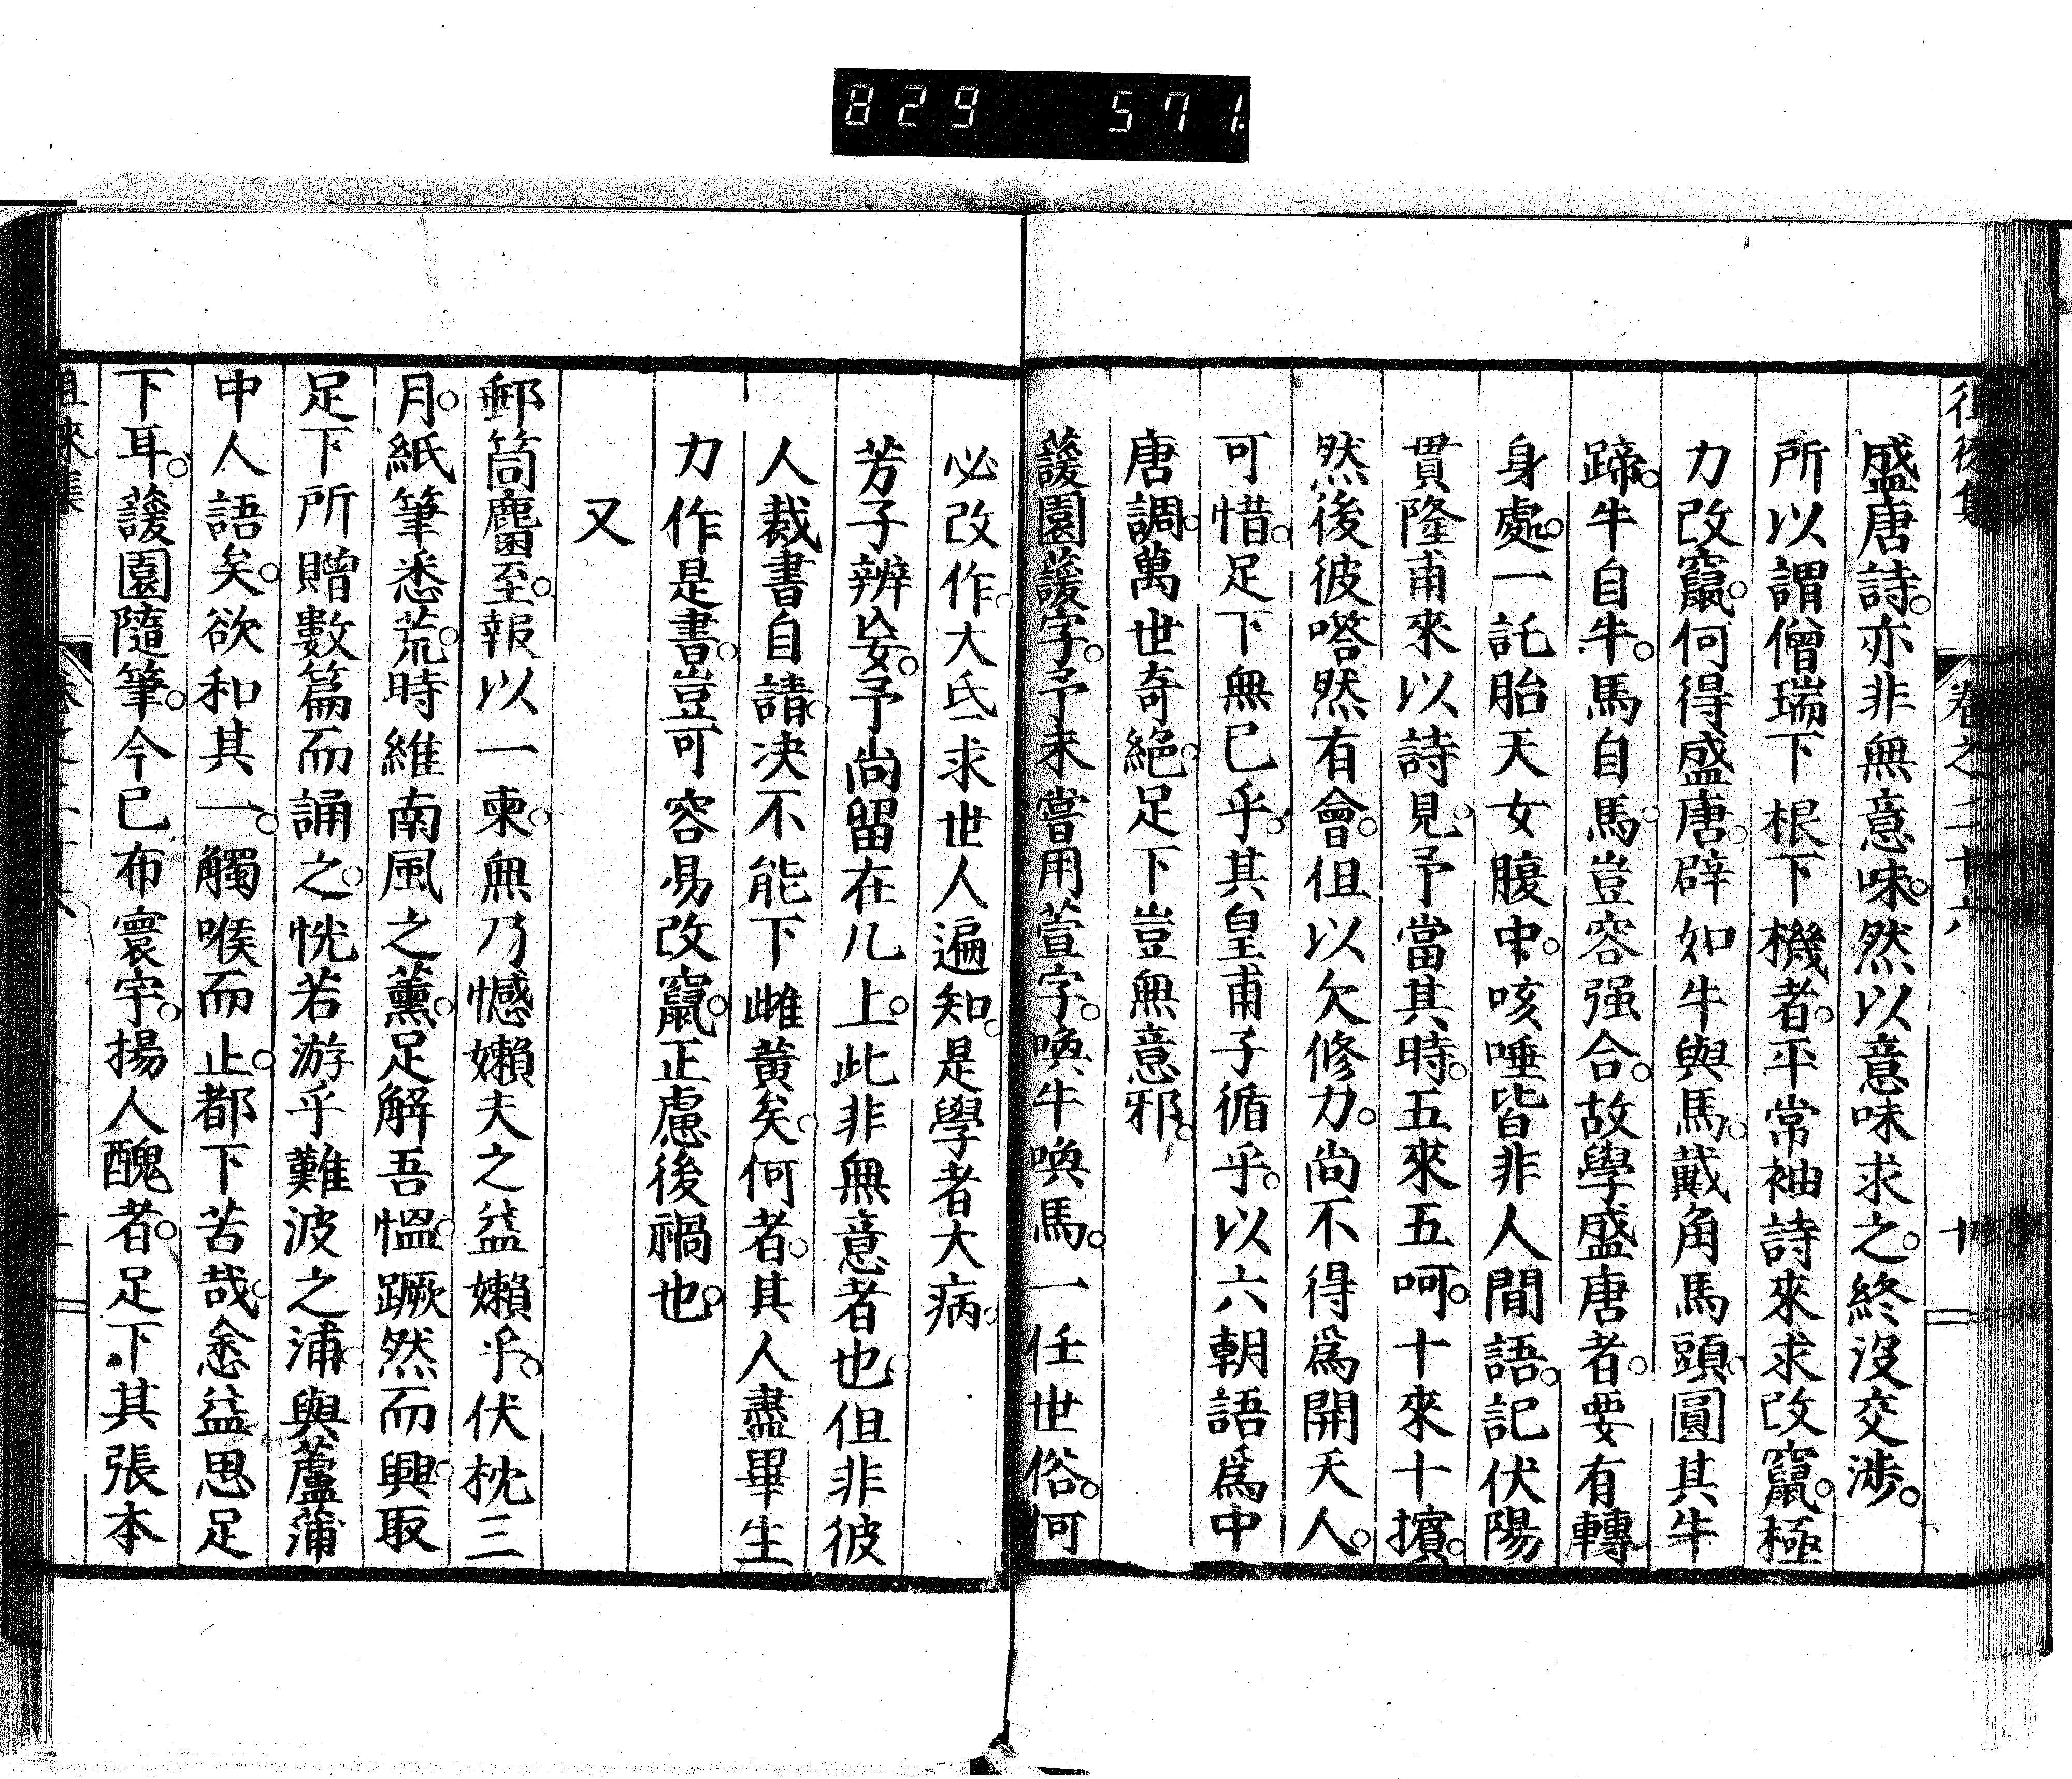 829 571
盛唐詩。亦非無意味。然以意味求之。終沒交渉。
所以謂僧瑞下根下機者。平常袖詩來求改竄。極
力改竄。何得盛唐。辟如牛與馬。戴角馬頭。圓其牛
蹄。牛自牛。馬自馬。豈容强合。故學盛唐者。要有轉
身處。一託胎天女腹中。咳唾皆非人間語。記伏陽
貫隆甫來以詩見。予當其時。五來五呵。十來十擯。
然後彼嗒然有會。但以欠修力。尚不得爲開天人。
可惜。足下無已乎。其皇甫子循乎。以六朝語爲中
唐調。萬世奇絕。足下豈無意邪。
蘐園蘐字。予未嘗用萱字。喚牛喚馬。一任世俗。何
必改作。大氐求世人遍知。是學者大病。
芳子辨妄。予尚留在几上。此非無意者也。但非彼
人裁書自請。决不能下雌黃矣。何者。其人盡畢生
力作是書。豈可容易改竄。正慮後禍也。
又
郵筒麕至。報以一柬。無乃憾嬾夫之益嬾乎。伏枕三
月。紙筆悉荒。時維南風之薰。足解吾慍。蹶然而興。取
足下所贈數篇而誦之。恍若游乎難波之浦。與蘆蒲
中人語矣。欲和其一。觸喉而止。都下苦哉。悆益思足
下耳。蘐園隨筆。今已布寰宇。揚人醜者。足下。其張本